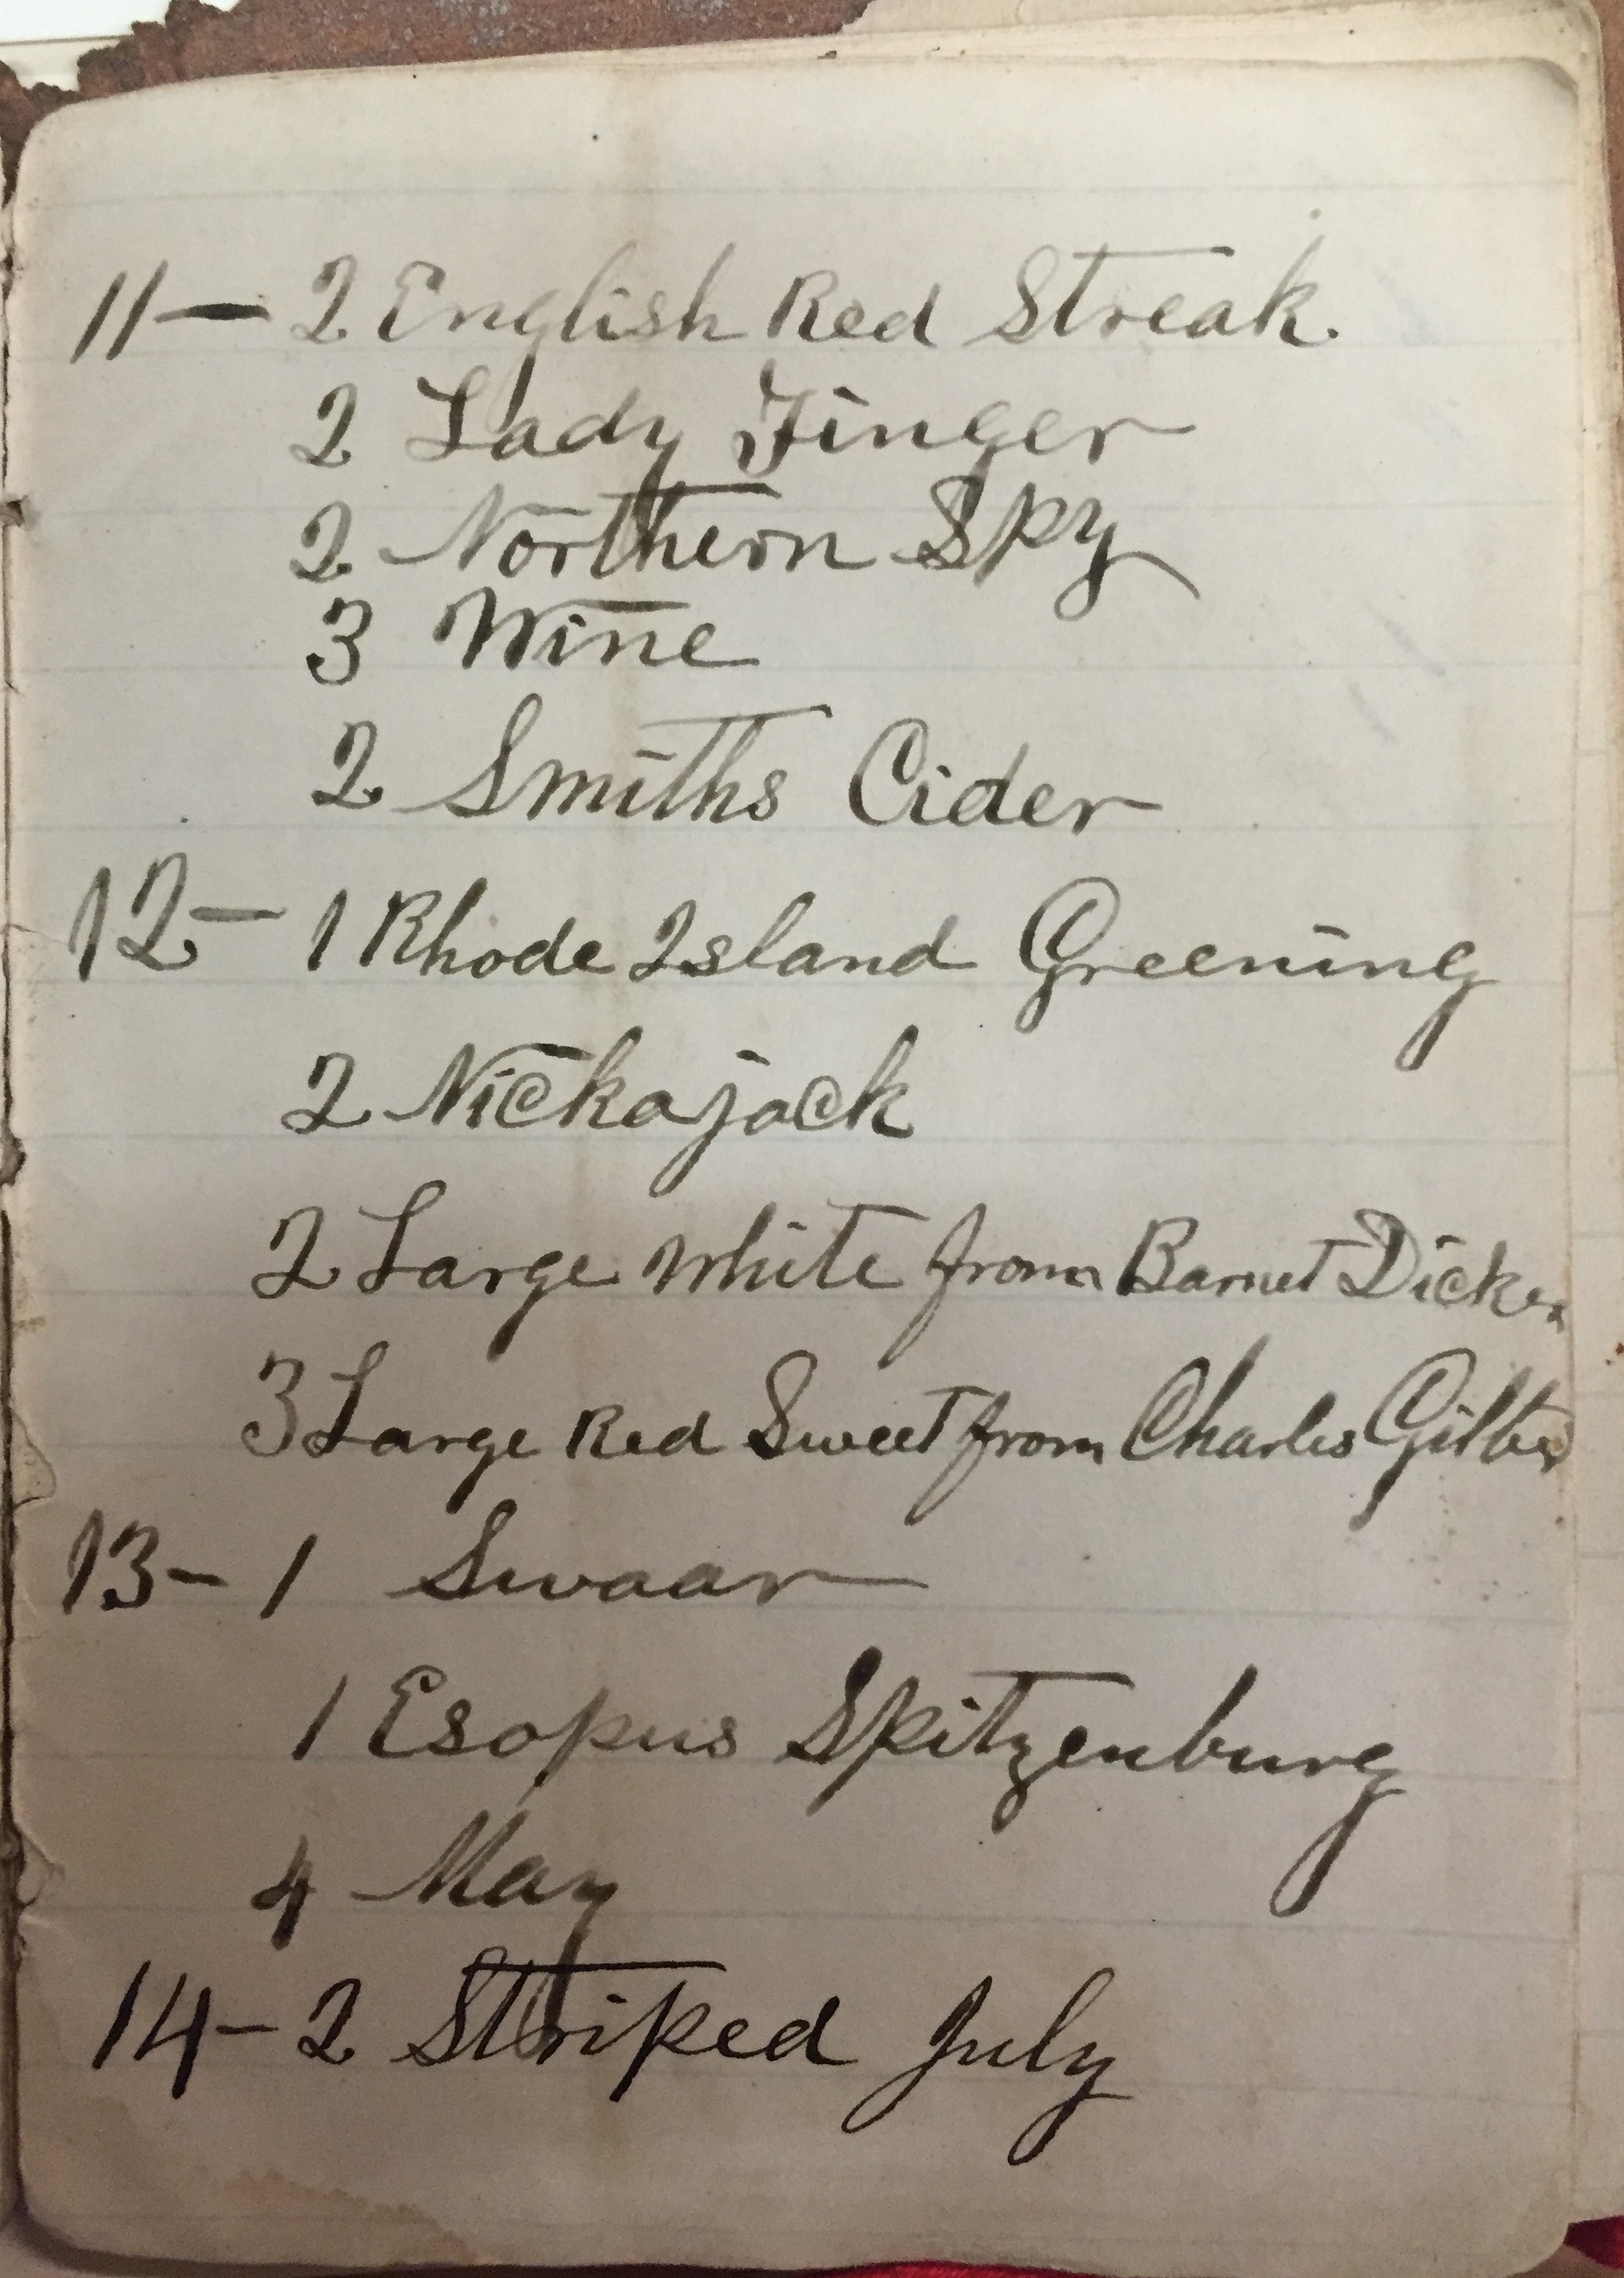 11— 2 English Red Streak.
2 Lady Finger
2 Northern Spy
3 Wine
2 Smiths Cider
12— 1 Rhode Island Greening
2 Nickajack
2 Large White from Barnet
3 Large Red Sweet from Charles
13— 1 Swaar
1 Esopus Spitzenburg
4 May
14— 2 Striped July